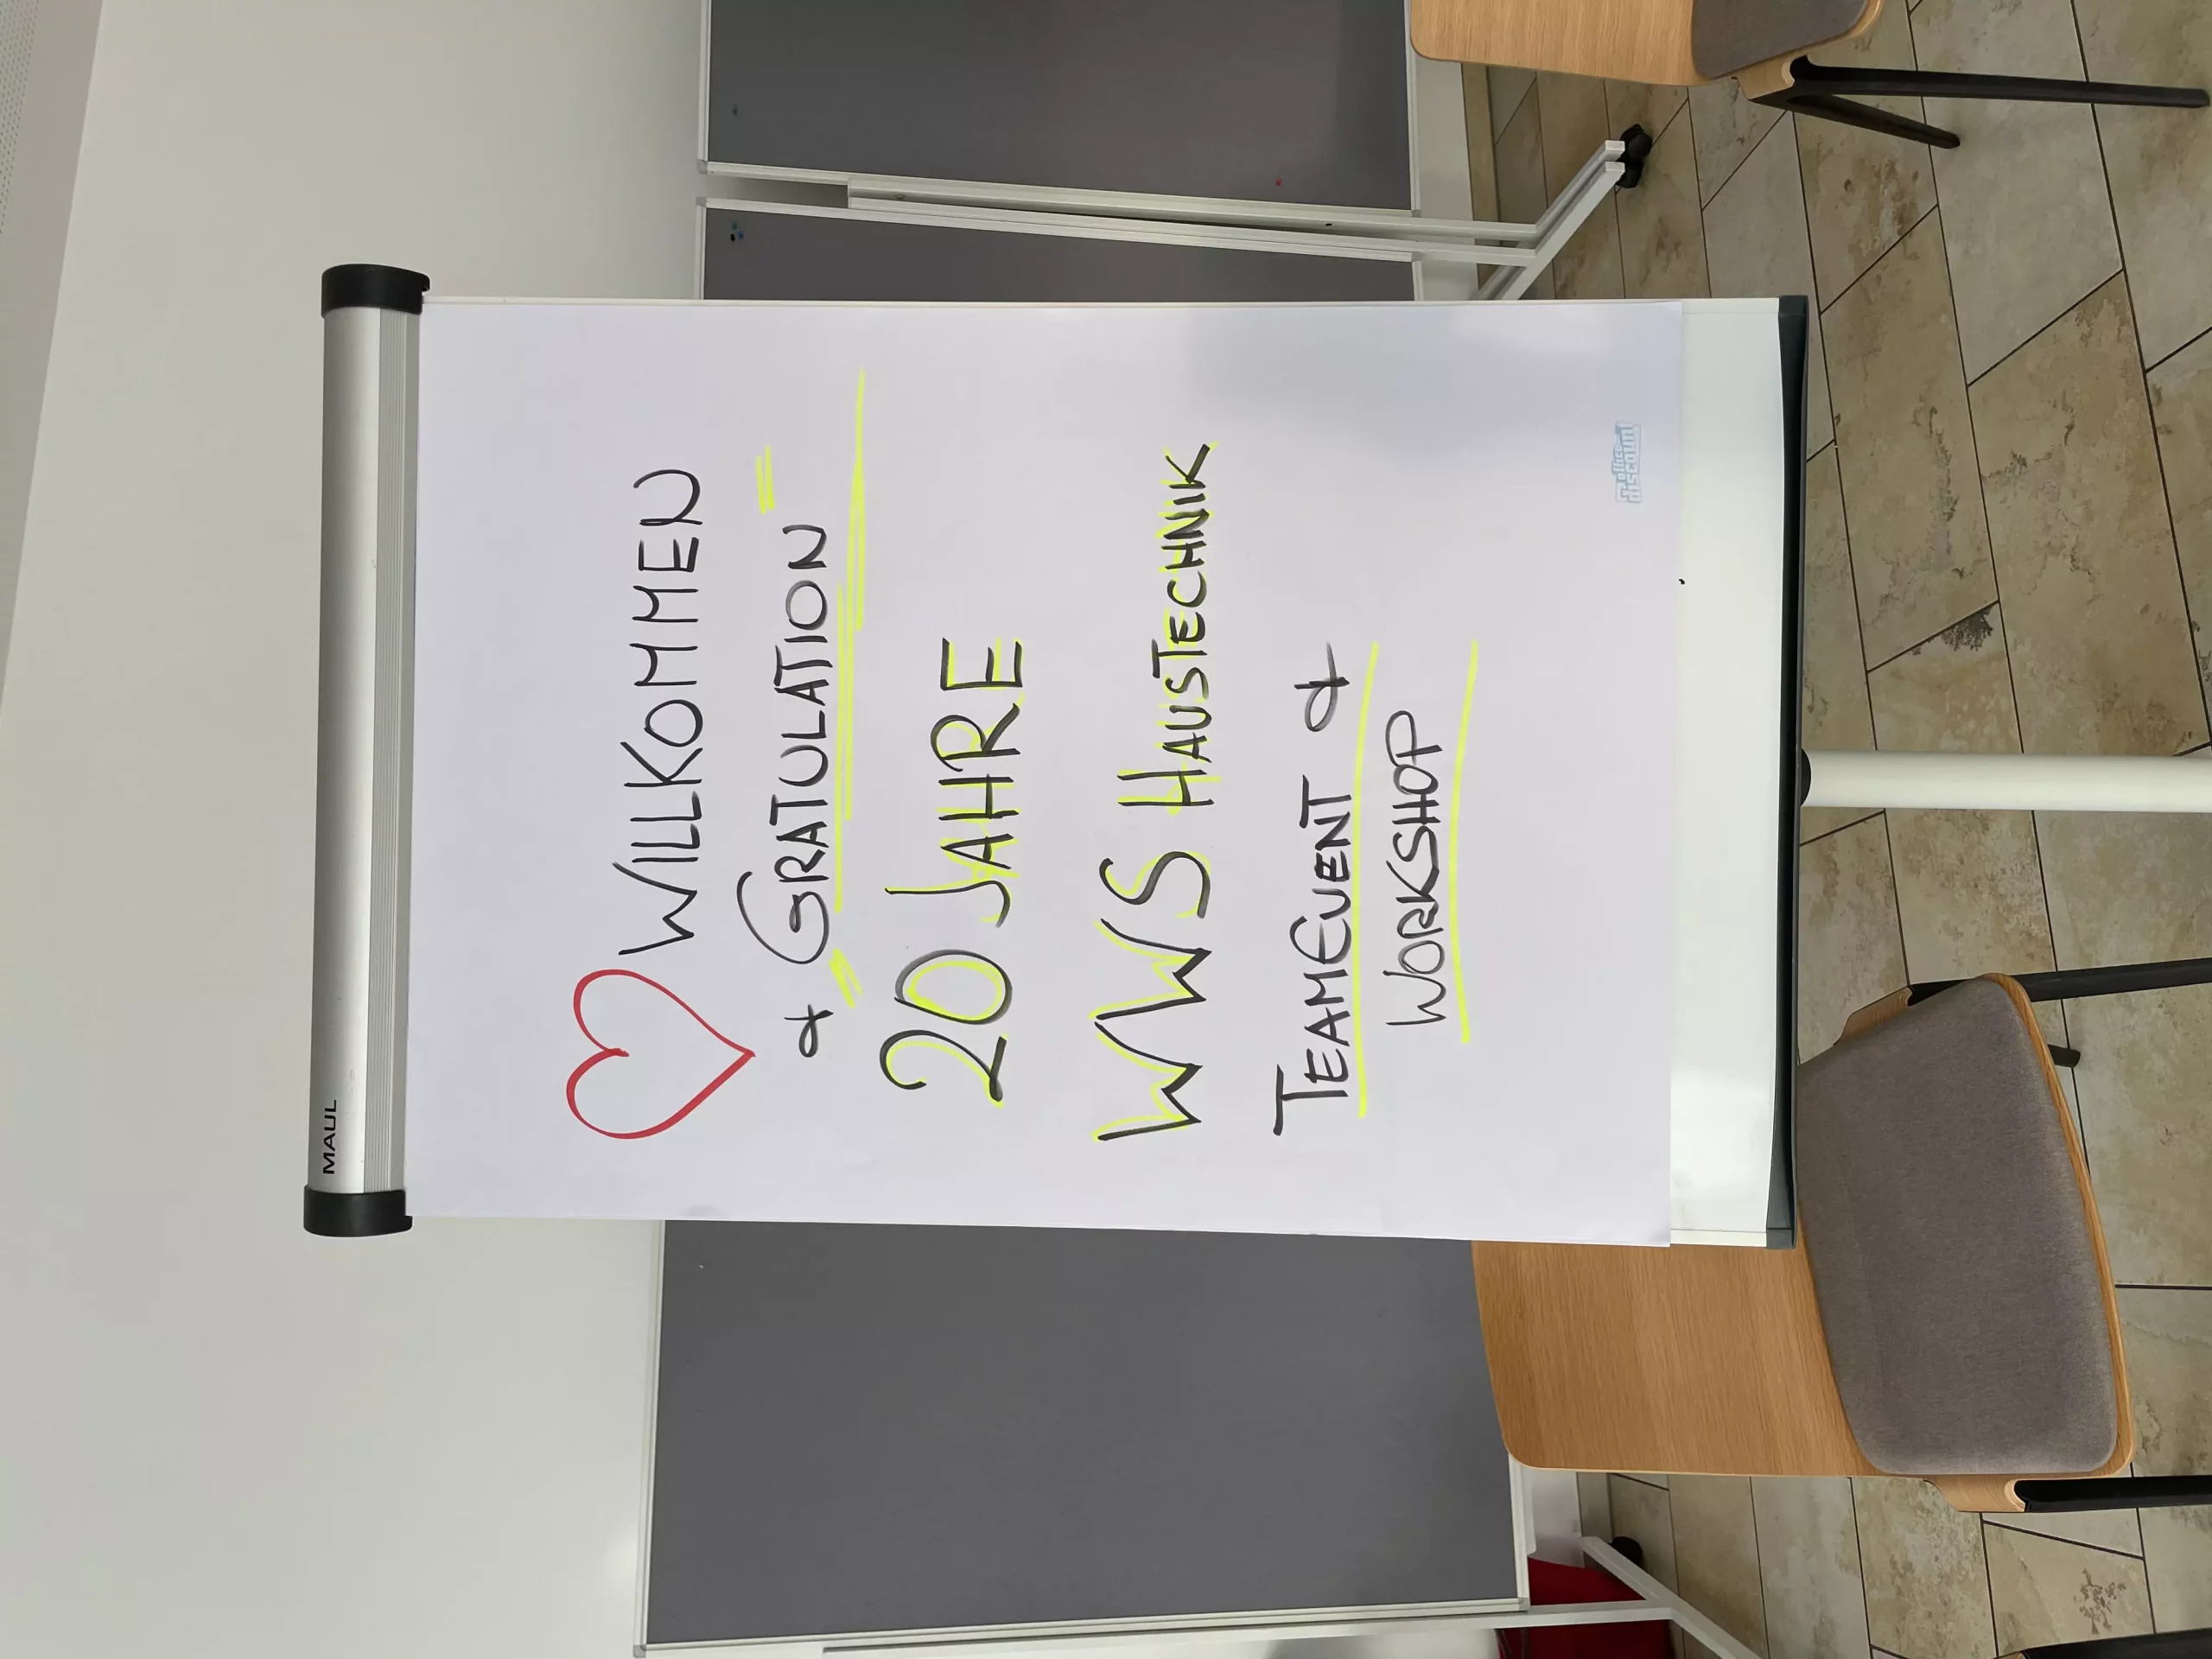 MAUL
WILLKOMMEN
& GRATULATION
20 JAHRE
WWS HAUSTECHNIK
TEAMEVENT &
WORKSHOP
office
discount